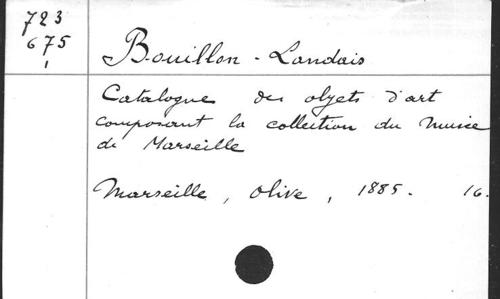 723
675
1
Bouillon - Landais
Catalogue des objets d'art
composant la collection du Musée
de Marseille
Marseille, Olive, 1885. 16.